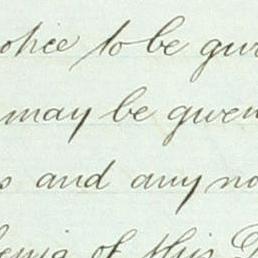 otice to be give
may be given
s and any no
of this